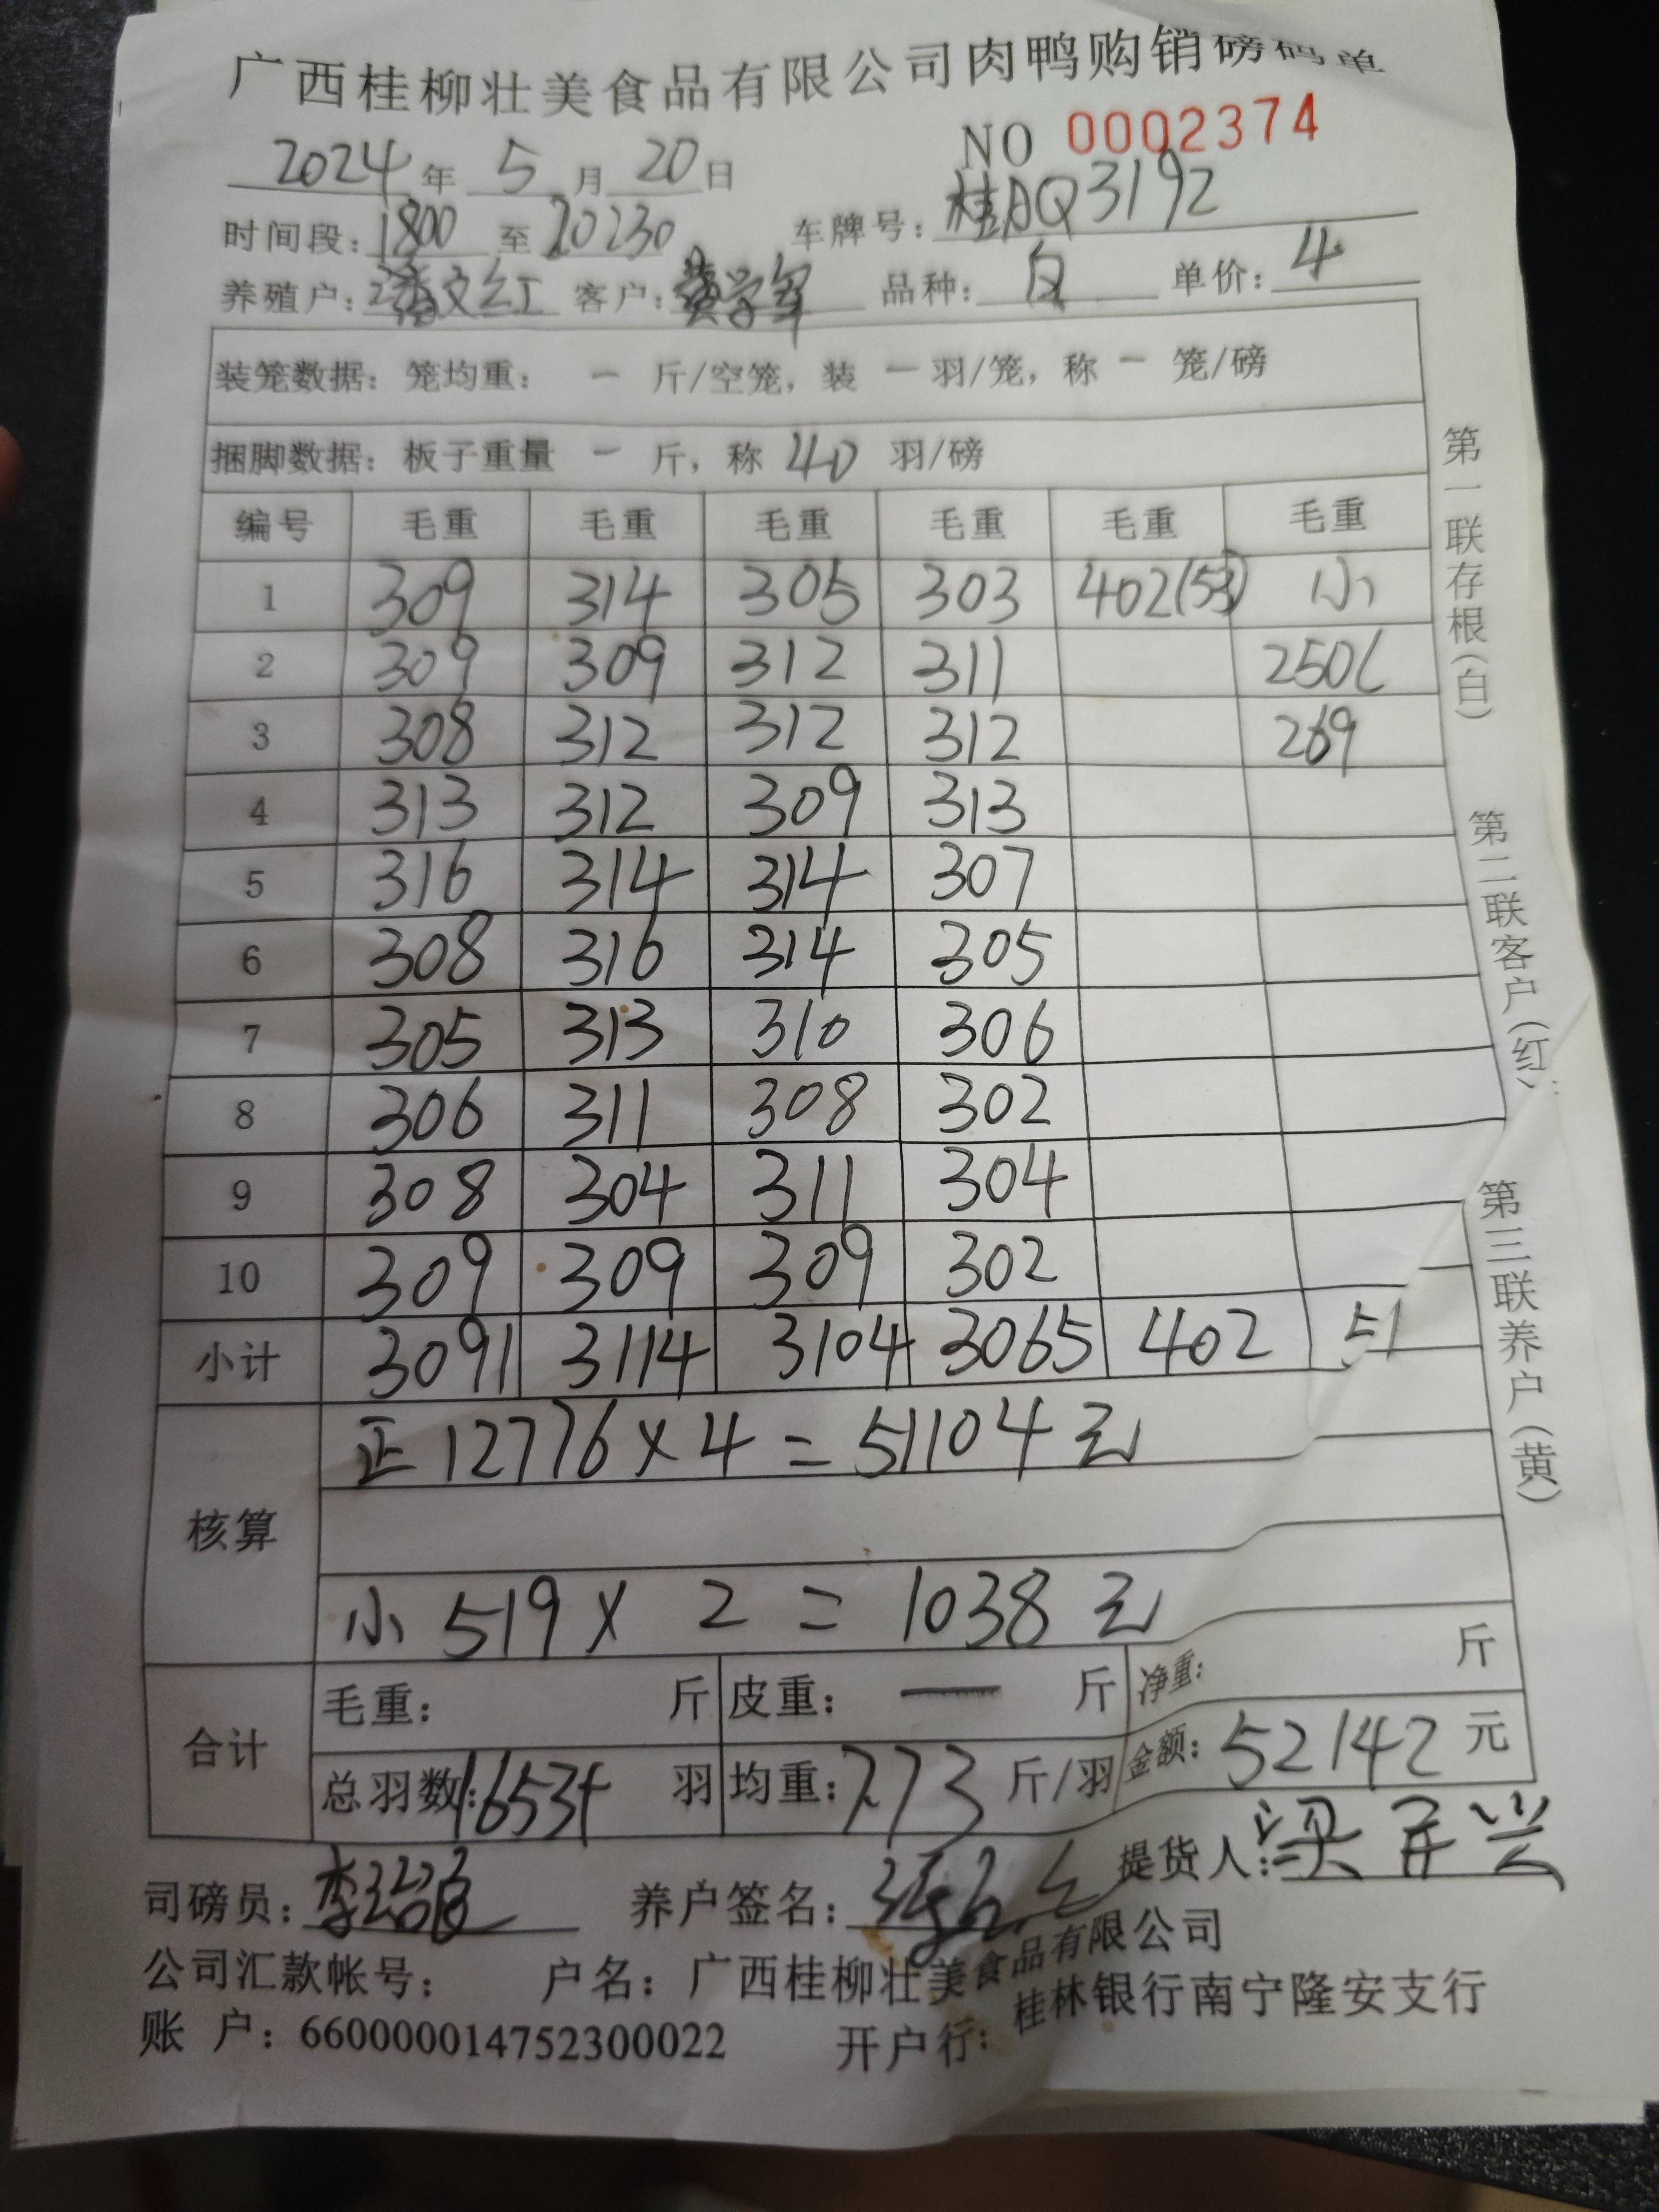 广西桂柳壮美食品有限公司肉鸭购销磅码单
NO 0002374
2024 年 5 月 20 日
时间段: 1800 至 20230 车牌号: 桂AQ3192
养殖户: 潘文红 客户: 黄学军 品种: 白 单价: 4
装笼数据: 笼均重: 一 斤/空笼, 装 一 羽/笼, 称 一 笼/磅
捆脚数据: 板子重量 一 斤, 称 40 羽/磅
编号 毛重 毛重 毛重 毛重 毛重 毛重
1 309 314 305 303 402(53) 小
2 309 309 312 311 250
3 308 312 312 312 269
4 313 312 309 313
5 316 314 314 307
6 308 316 314 305
7 305 313 310 306
8 306 311 308 302
9 308 304 311 304
10 309 309 309 302
小计 3091 3114 3104 3065 402 51
核算
正 12776 × 4 = 51104 元
小 519 × 2 = 1038 元
合计
毛重: 斤 皮重: 一 斤 净重: 斤
总羽数: 1653 羽 均重: 7.73 斤/羽 金额: 52142 元
司磅员: 养户签名: 提货人: 梁
公司汇款帐号: 户名: 广西桂柳壮美食品有限公司
账 户: 660000014752300022 开户行: 桂林银行南宁隆安支行
第一联存根(白)
第二联客户(红)
第三联养户(黄)